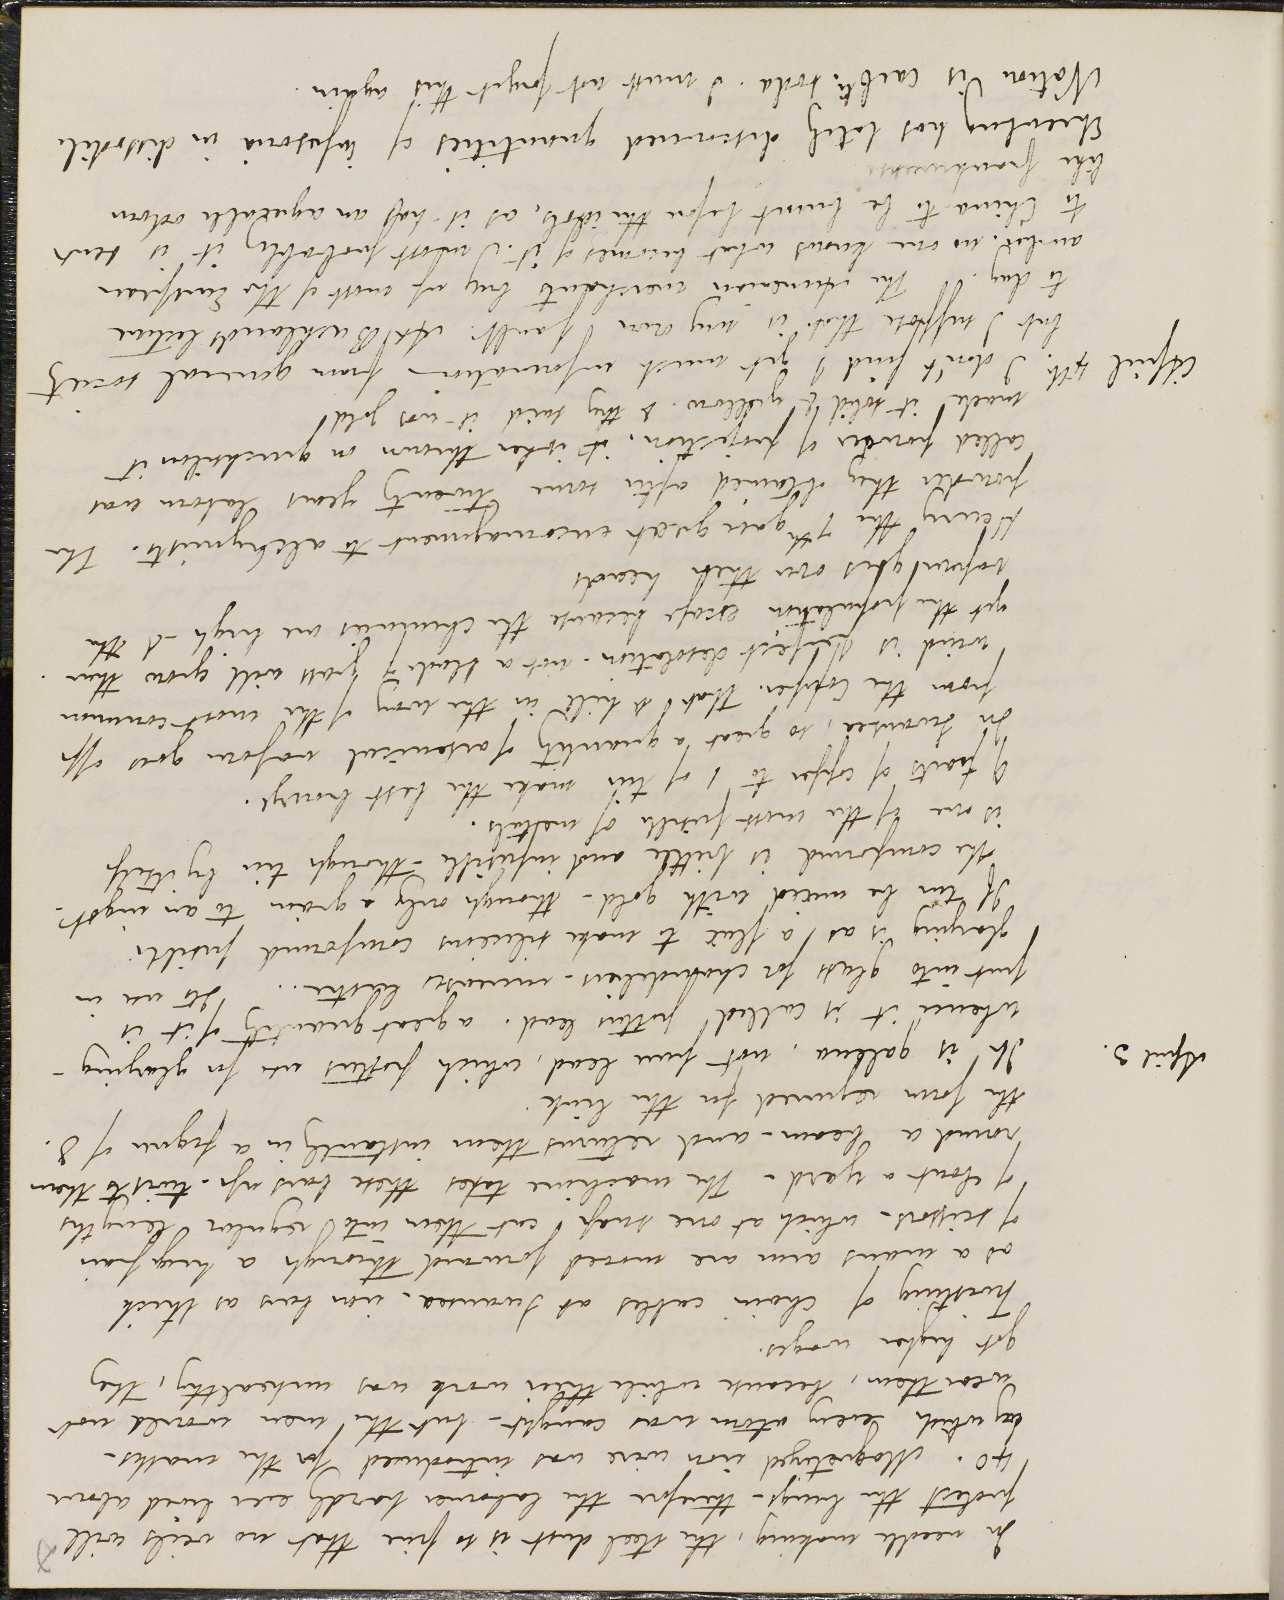 In needle making, the steel dust is so fine that no veils will
protect the lungs - therefore the labourer hardly ever lived above
40. Magnetized iron wire was introduced for the masks -
by which every atom was caught - but the men would not
wear them, because while their work was unhealthy, they
got higher wages.
Twisting of chain cables at Swansea - iron bars as thick
as a mans arm are moved forward through a huge pair
of scissors - which at one snap cut them into regular lengths
of about a yard - The machine takes these bars up - twists them
round a beam - and returns them instantly in a figure of 8.
the form required for the link.
April 3. It is galena, not pure lead, which potters use for glazing -
whence it is called potters lead. a great quantity of it is
put into glass for chandeliers - increases lustre.. Its use in
glazing is as a flux to make siliceous compound fusible.
If tin be mixed with gold - though only a grain to an ingot -
the compound is brittle and infusible - though tin by itself
is one of the most fusible of metals.
9 parts of copper to 1 of tin make the best bronze.
In Swansea, so great a quantity of arsenical vapour goes off
from the copper. that a hill in the way of the most common
wind is perfect desolation - not a blade of grass will grow there.
yet the population escape because the chimnies are high - & the
vapour goes over their heads
Henry the 7th gave great encouragement to alchymists. The
powder they obtained after some twenty years labour was
called powder of projection. it when thrown on quicksilver it
made it solid & yellow. & they said it was gold
April 4th. I don't find I get much information from general society
but I suppose that is my own fault. At Bucklands lecture
to day. The Armenian merchants buy up most of the European
amber. no one knows what becomes of it. most probably it is sent
to China to be burnt before the idols, as it has an agreeable odour
like frankincense
Ehrenberg has lately discovered quantities of infusoria in dissodile
Natron is carbte. soda. I must not forget this again.